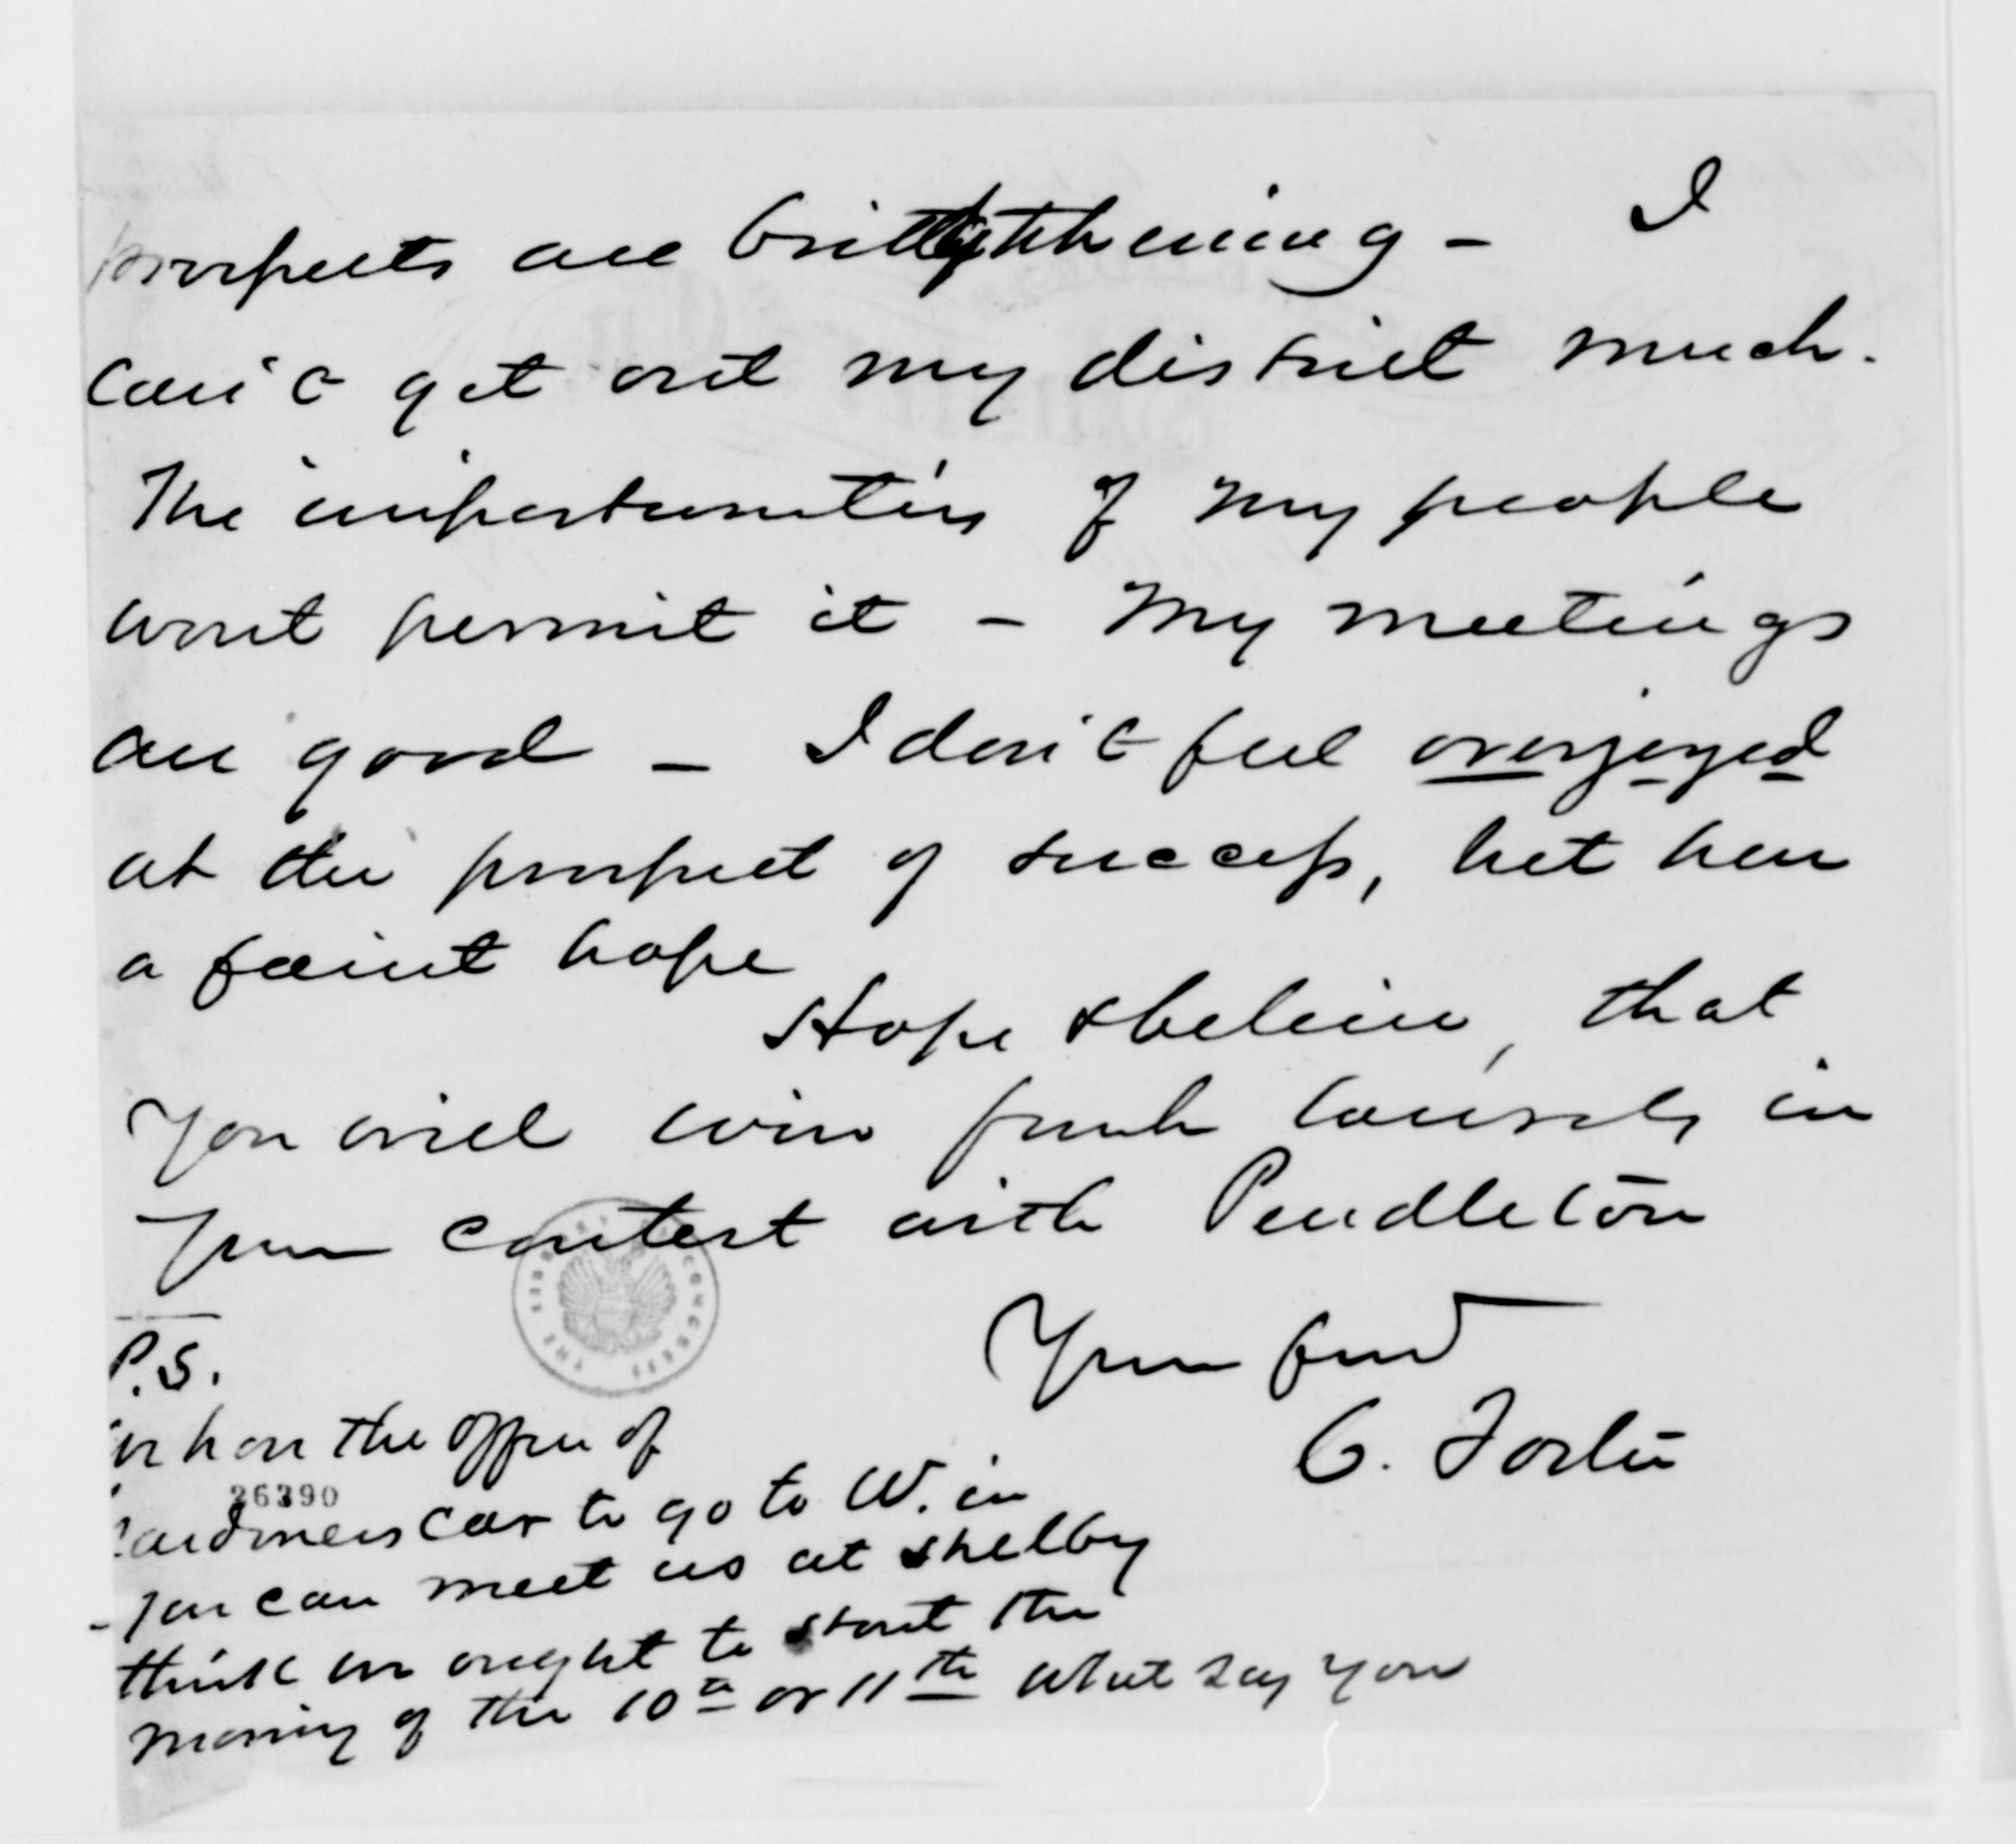 prospects are brightening - I
can't get out my district much.
The importunities of my people
wont permit it - My meetings
are good - I don't feel overjoyed
at the prospect of success, but have
a faint hope
Hope & believe, that
you will win fresh laurels in
your contest with Pendleton
Your friend
C. Foster
P.S.
we have the offer of
26390
Gardiners car to go to W. in
- you can meet us at Shelby
think we ought to start the
morning of the 10th or 11th what say you
THE LIBRARY OF CONGRESS